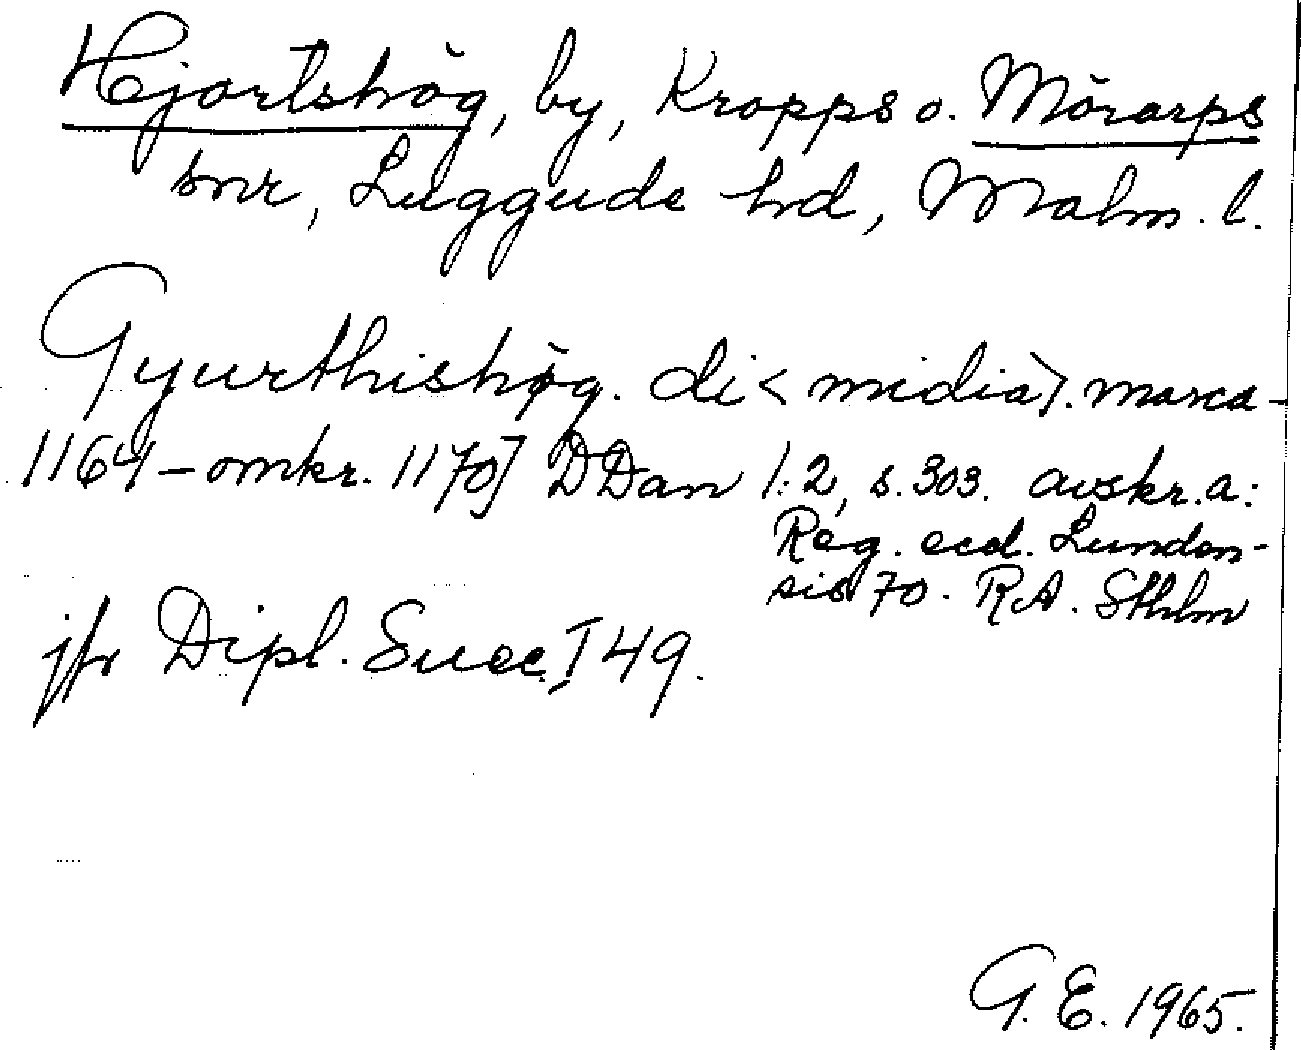 Hjortshög, by, Kropps o. Mörarps
snr, Luggude hd, Malm. l.
Gyurthishøg. di<midia>. marca -
1164 – omkr. 1170] DDan 1:2, s. 303. avskr. a:
Reg. eccl. Lunden-
sis 70. RA. Sthlm
jfr Dipl. Suec. I 49.
G. E. 1965.